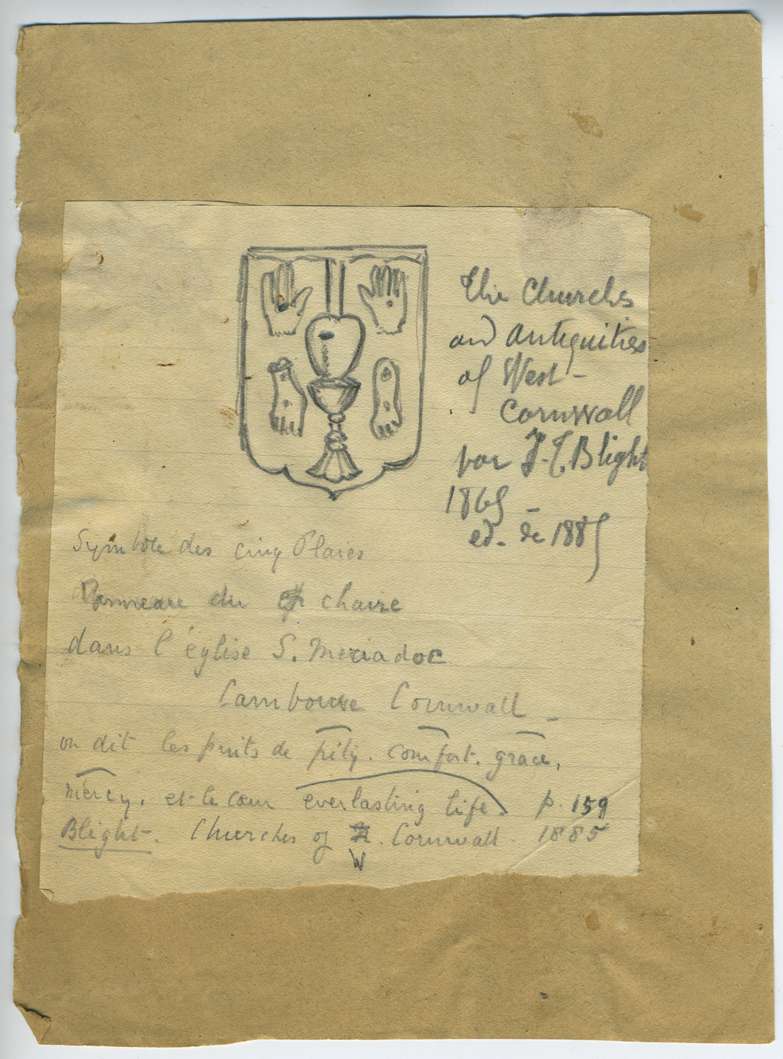 The Churches
and Antiquities
of West-
Cornwall
par J.T. Blight
1865 -
ed. de 1885
Symbole des cinq Plaies
Panneau du chaire
dans l'église S. Meriadoc
Camborne Cornwall -
on dit les puits de pity. comfort. grace,
mercy. et le cœur everlasting life. p. 159
Blight. Churches of W. Cornwall 1885